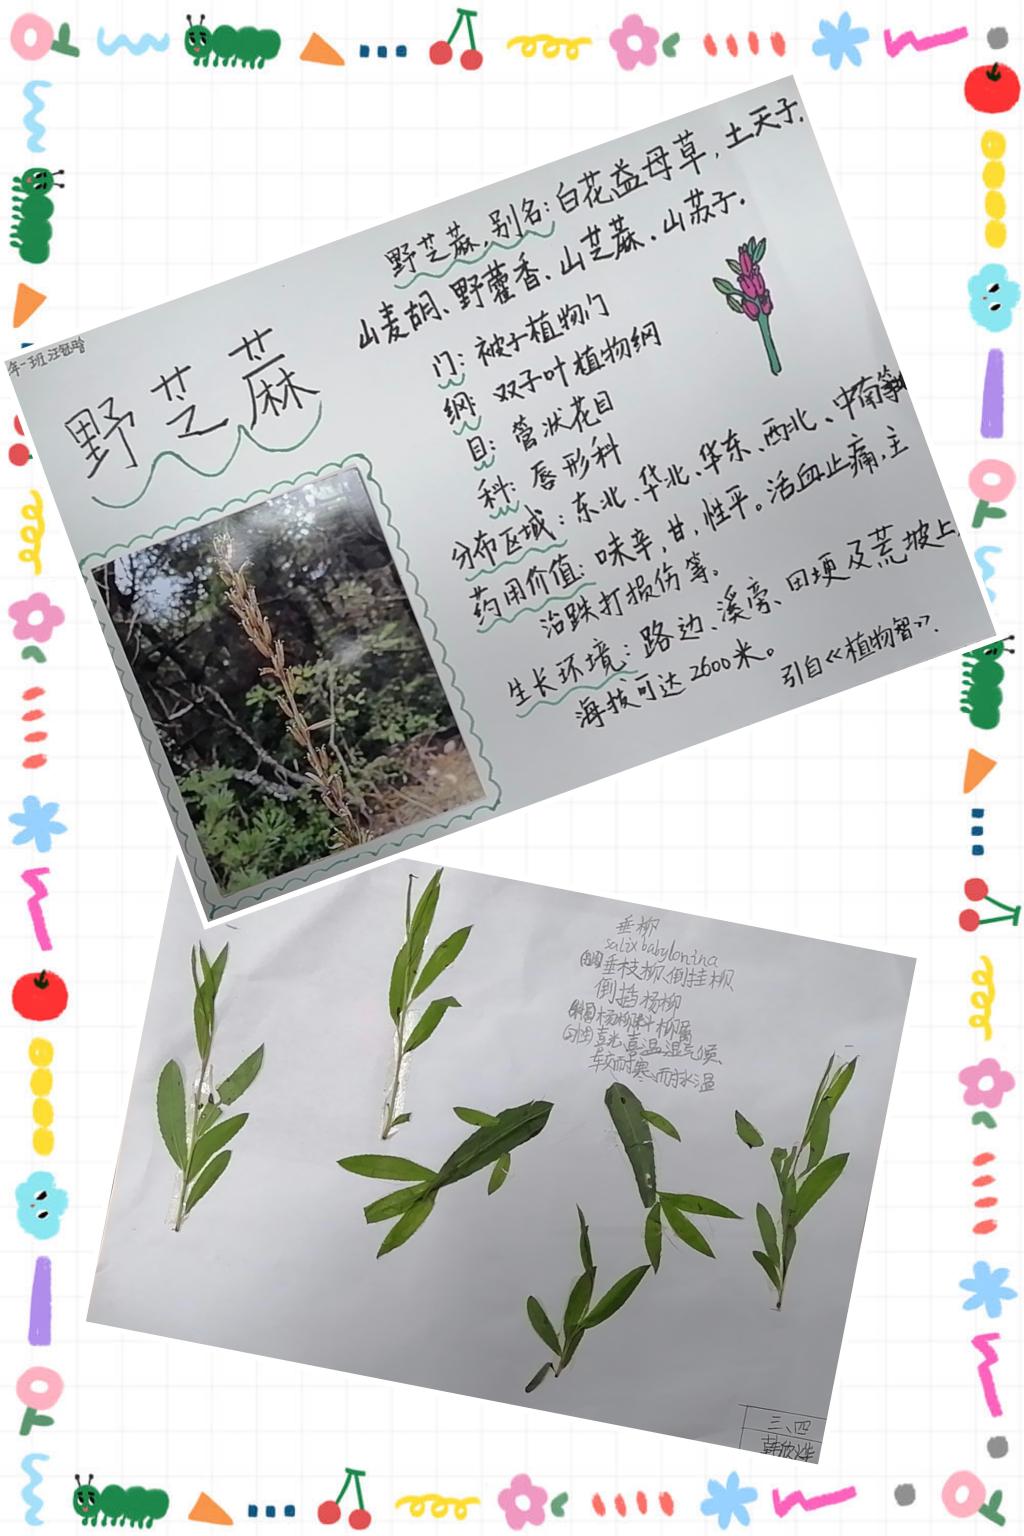 野芝蔴,别名:白花益母草,土天子.
山麦胡、野藿香、山芝蔴、山苏子.
年一班
野芝蔴
门:被子植物门
纲:双子叶植物纲
目:管状花目
科:唇形科
分布区域:东北、华北、华东、西北、中南等
药用价值:味辛,甘,性平。活血止痛,主
治跌打损伤等。
生长环境:路边、溪旁、田埂及荒坡上,
海拔可达2600米。
引自《植物智》.
垂柳
salix babylonina
垂枝柳、倒挂柳、
倒插杨柳
杨柳科柳属
喜光喜温湿气候、
较耐寒、耐水湿
三、四